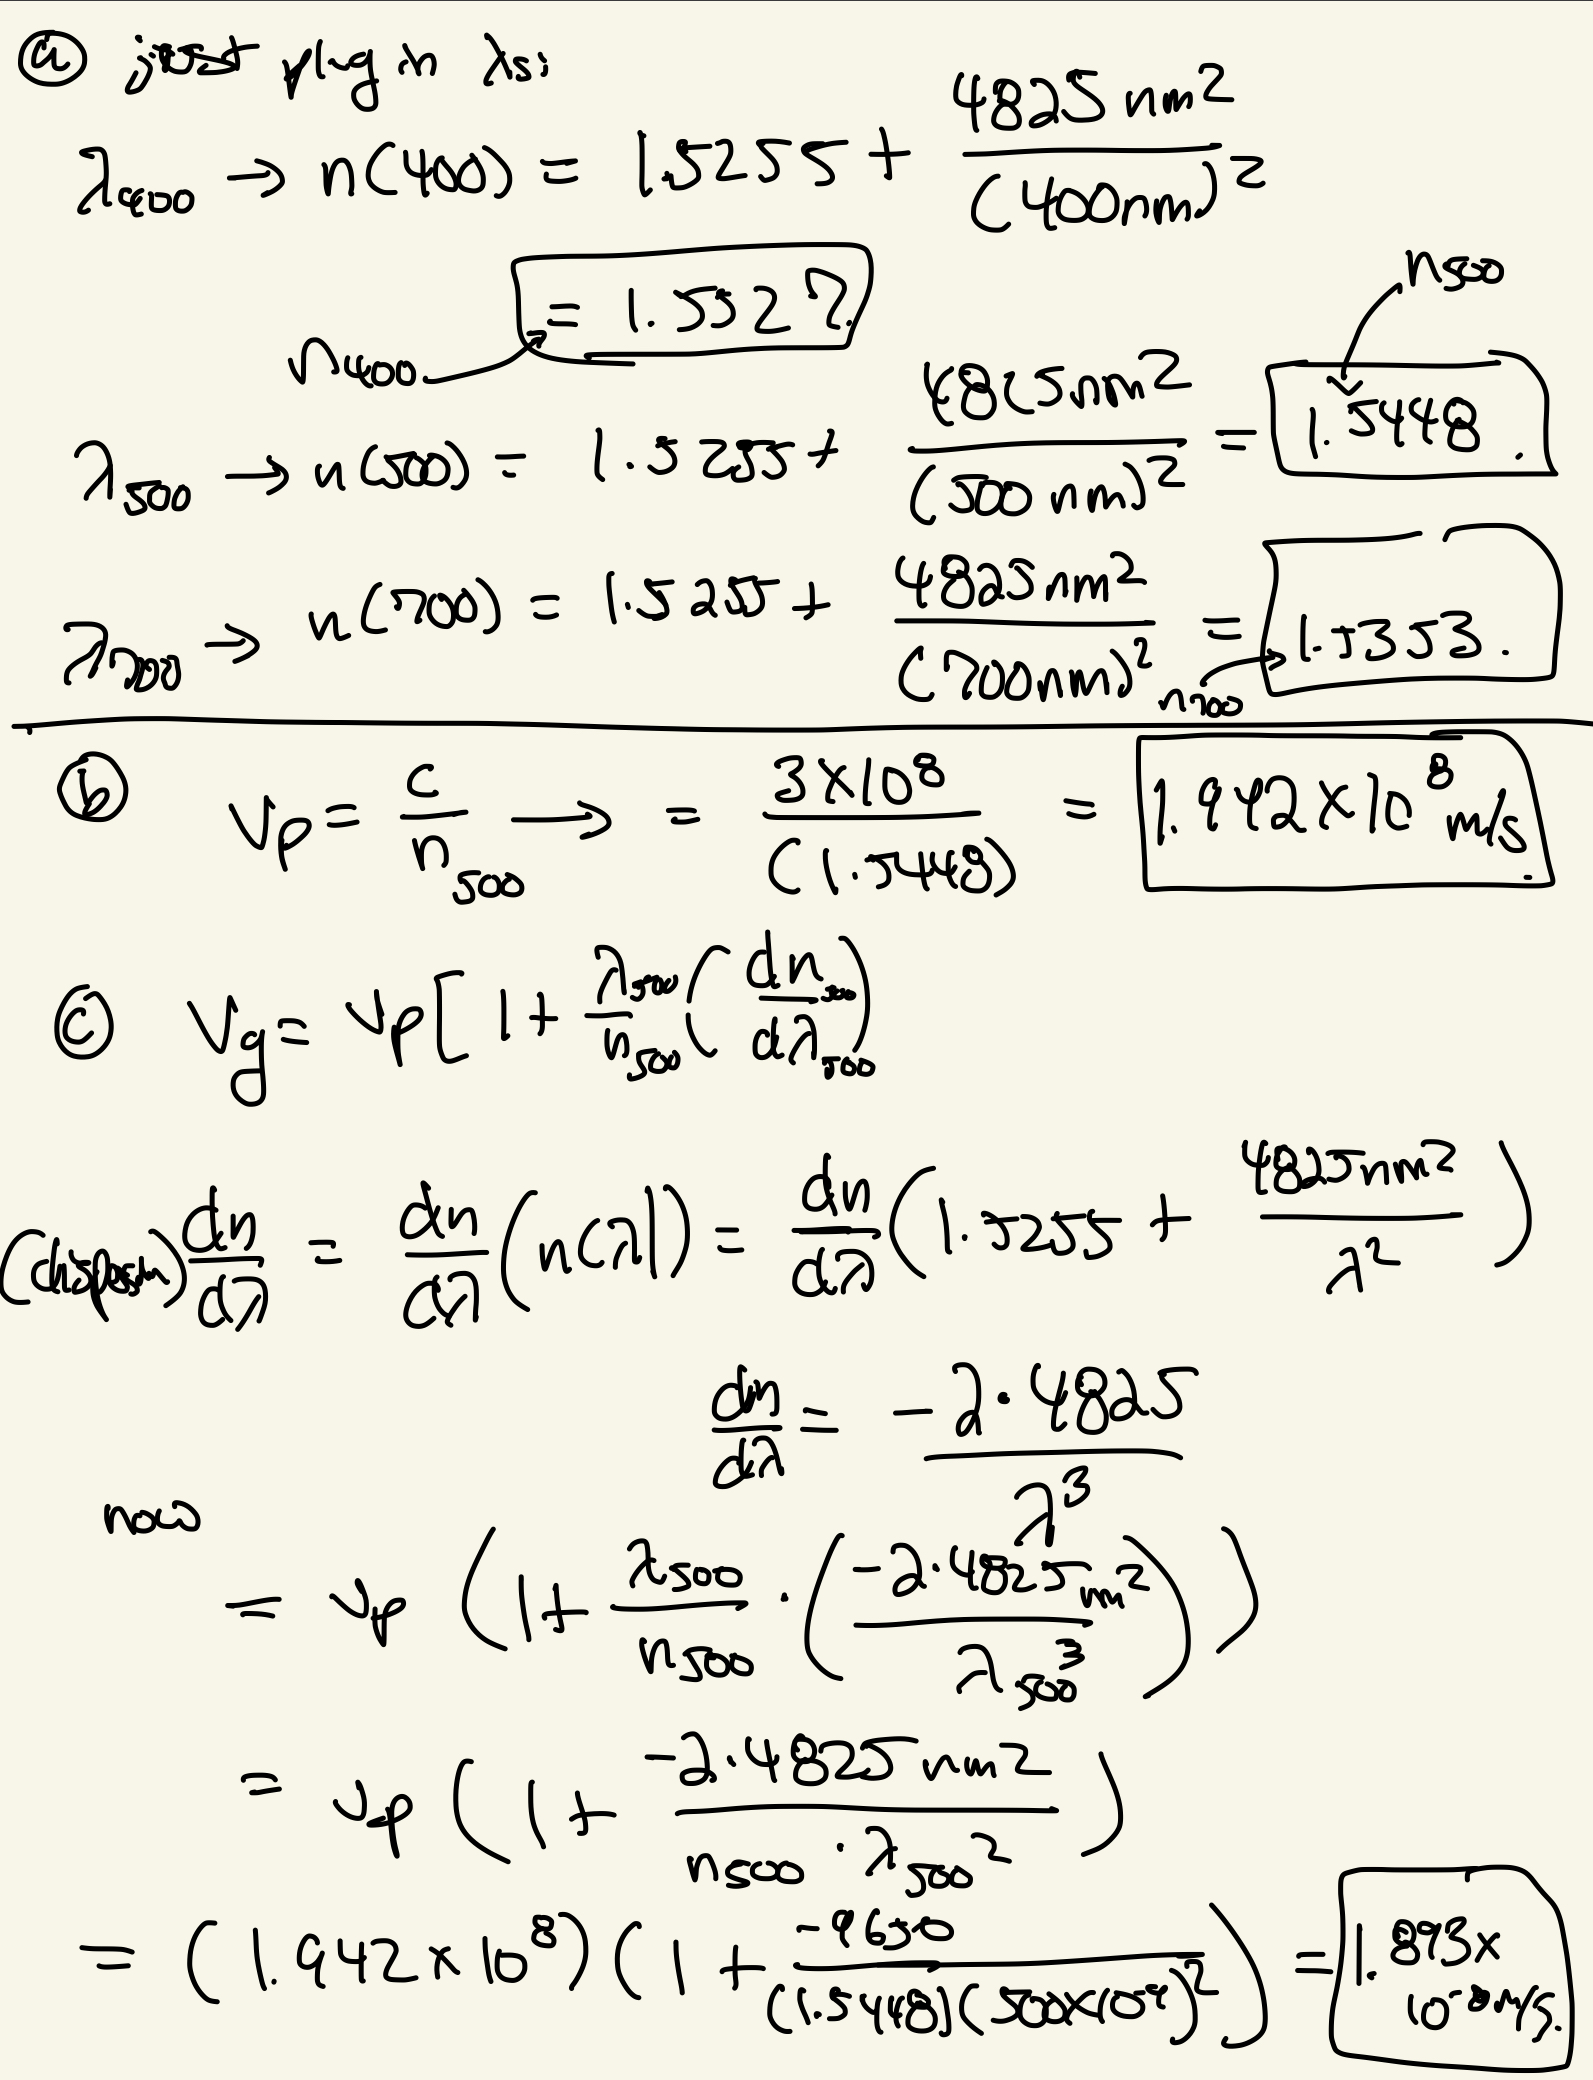 ⓐ just plug in λs:
λ400 → n(400) = 1.5255 + 4825 nm² / (400nm)²
= 1.5527
n400
n500
λ500 → n(500) = 1.5255 + 4825nm² / (500 nm)² = 1.5448.
λ700 → n(700) = 1.5255 + 4825nm² / (700nm)² = 1.5353.
n700
ⓑ vp = c / n500 → = 3×10⁸ / (1.5448) = 1.942×10⁸ m/s.
ⓒ Vg = vp[ 1 + λ500 / n500 ( dn500 / dλ500 )
dn / dλ = dn / dλ (n(λ)) = dn / dλ ( 1.5255 + 4825nm² / λ² )
dn / dλ = -2·4825 / λ³
now
= vp ( 1 + λ500 / n500 · ( -2·4825nm² / λ500³ ) )
= vp ( 1 + -2·4825 nm² / n500 · λ500² )
= (1.942×10⁸) ( 1 + -9650 / (1.5448)(500×10⁻⁹)² ) = 1.893× 10⁻⁸ m/s.